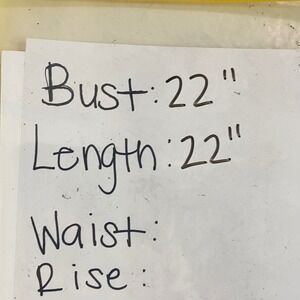 Bust: 22"
Length: 22"
Waist:
Rise: